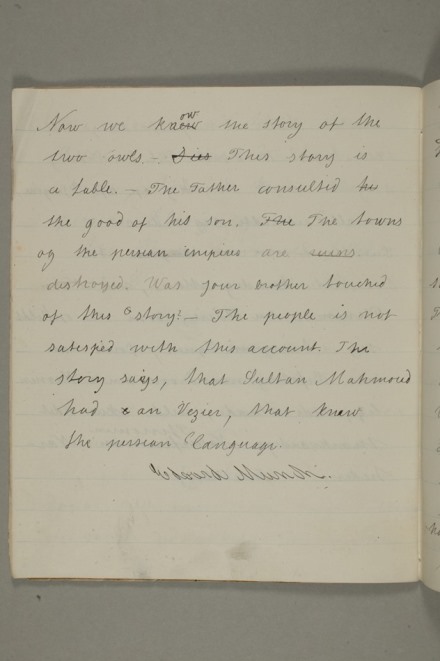 Now we know the story of the
two owls. — This story is
a fable. — The Father consulted
the good of his son. The towns
of the persian empires are ruins
destroyed. Was your brother touched
of this story? — The people is not
satisfied with this account. The
story says, that Sultan Mahmoud
had an Vezier, that knew
the persian Language.